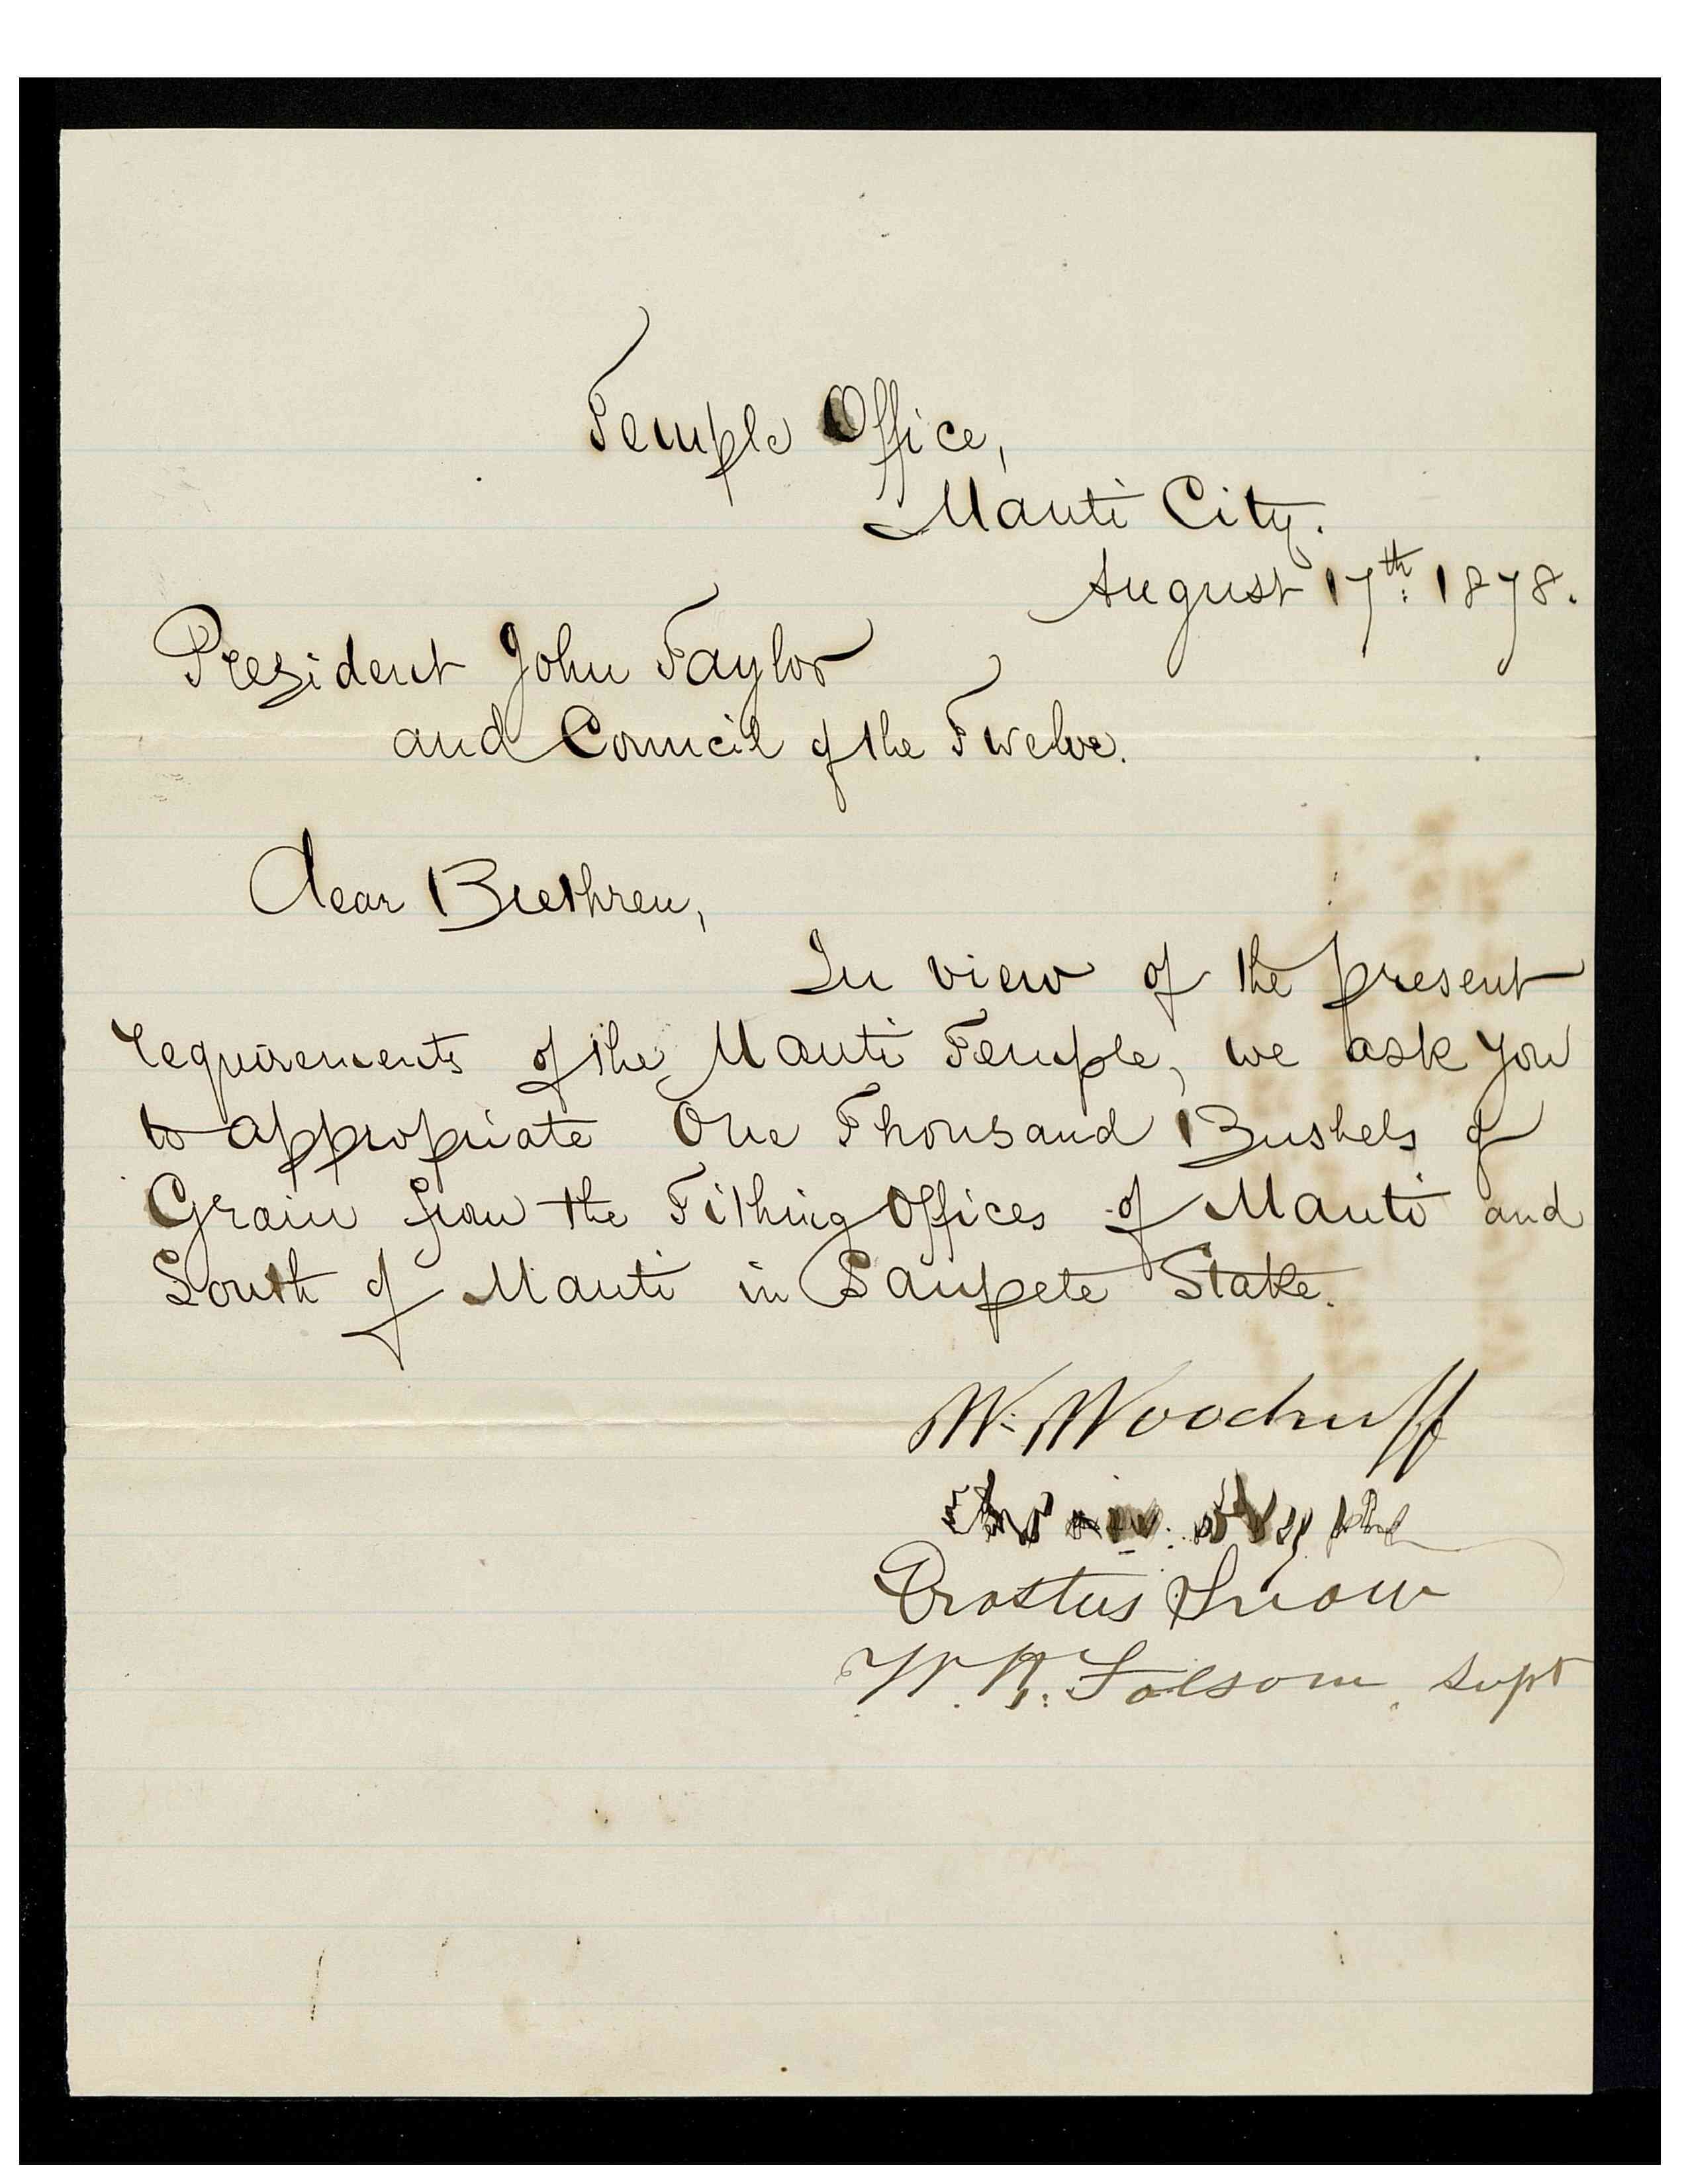 Temple Office,
Manti City.
August 17th: 1878.
President John Taylor
and Council of the Twelve.
Dear Brethren,
In view of the present
requirements of the Manti Temple, we ask you
to appropriate One Thousand Bushels of
Grain from the Tithing Offices of Manti and
South of Manti in Sanpete Stake.
W. Woodruff
Erastus Snow
W. H. Folsom, Supt